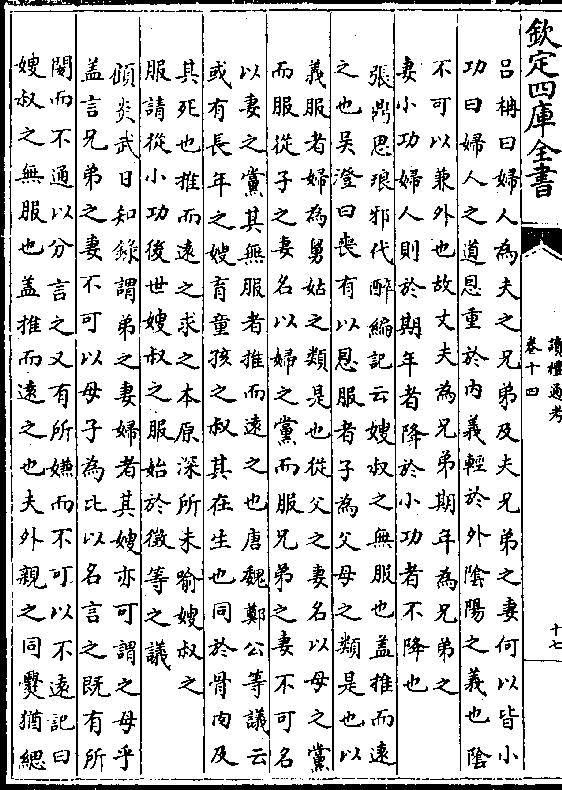 欽定四庫全書
讀禮通考
卷十四
十七
呂柟曰婦人為夫之兄弟及夫兄弟之妻何以皆小
功曰婦人之道恩重於內義輕於外陰陽之義也陰
不可以兼外也故丈夫為兄弟期年為兄弟之
妻小功婦人則於期年者降於小功者不降也
張鼎思琅邪代醉編記云嫂叔之無服也蓋推而遠
之也吳澄曰喪有以恩服者子為父母之類是也以
義服者婦為舅姑之類是也從父之妻名以母之黨
而服從子之妻名以婦之黨而服兄弟之妻不可名
以妻之黨其無服者推而遠之也唐魏鄭公等議云
或有長年之嫂育童孩之叔其在生也同於骨肉及
其死也推而遠之求之本原深所未喻嫂叔之
服請從小功後世嫂叔之服始於徵等之議
傾炎武日知錄謂弟之妻婦者其嫂亦可謂之母乎
蓋言兄弟之妻不可以母子為比以名言之既有所
閡而不通以分言之又有所嫌而不可以不遠記曰
嫂叔之無服也蓋推而遠之也夫外親之同爨猶緦